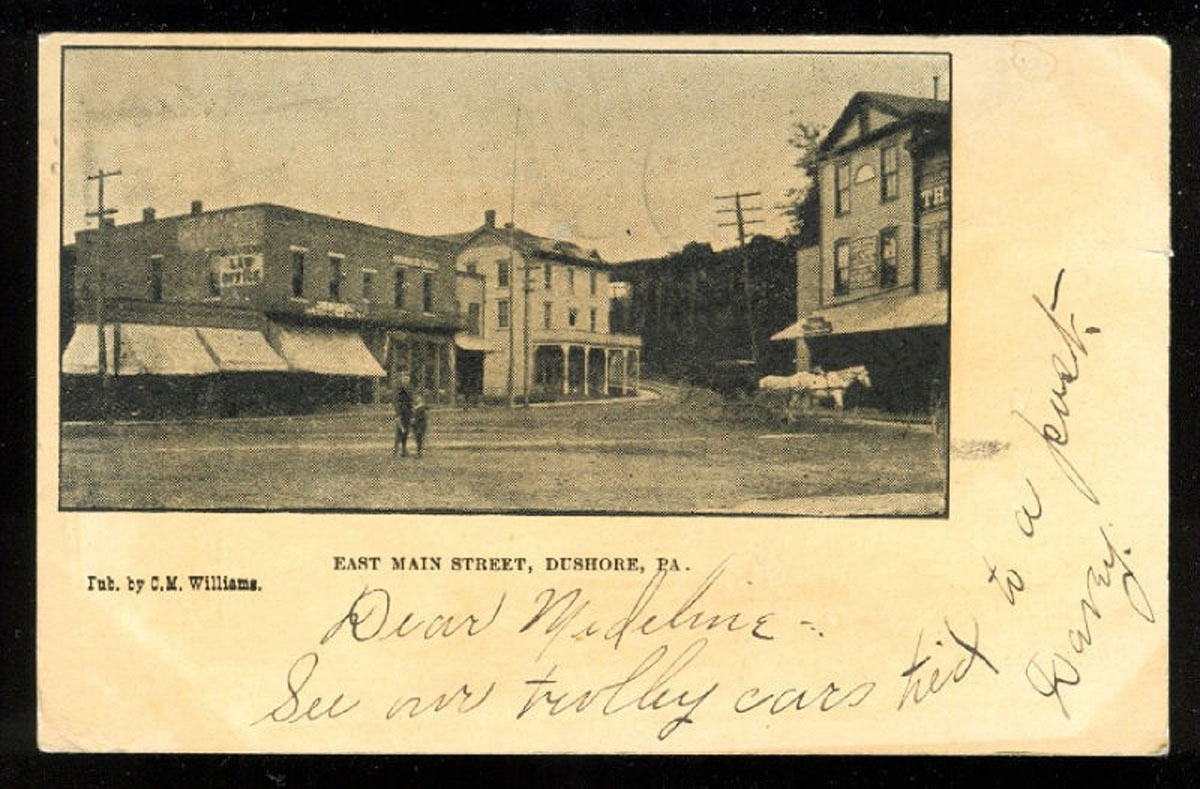 LAW
OFFICE
TH
EAST MAIN STREET, DUSHORE, PA.
Pub. by C.M. Williams.
Dear Madeline -
See our trolley cars tied to a post.
Davey.